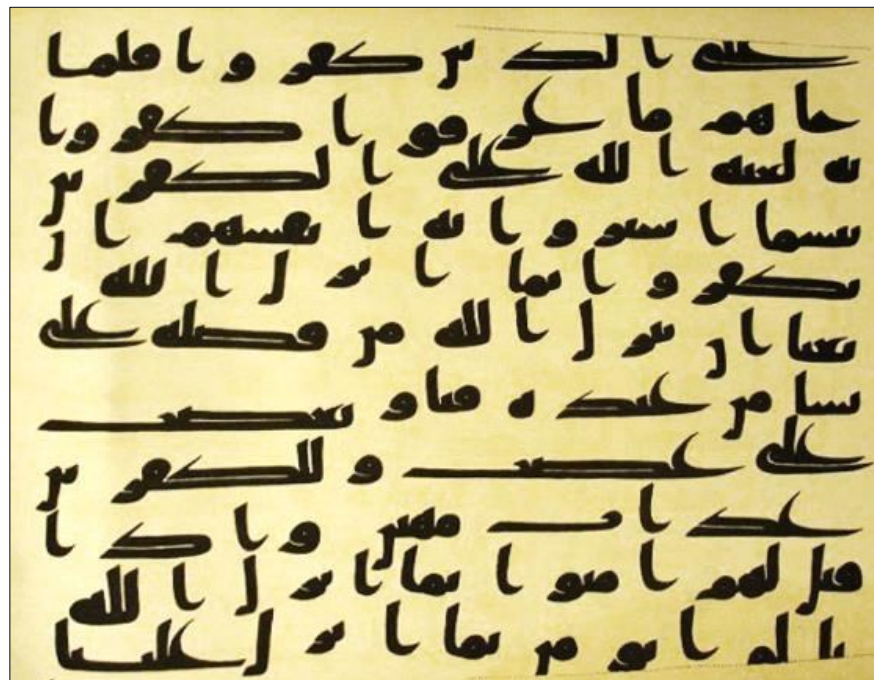 على الذين كفروا فلما
جاهم ما عرفوا كفروا
به لعنه الله على الكفرين
بئسما اشتروا به انفسهم ان
يكفروا بما انزل الله
بغيا ان ينزل الله من فضله على
يشا من عبده فباو بغضب
على غضب وللكفرين
عذاب مهين واذا
قيل لهم امنوا بما انزل الله
قالوا نومن بما انزل علينا